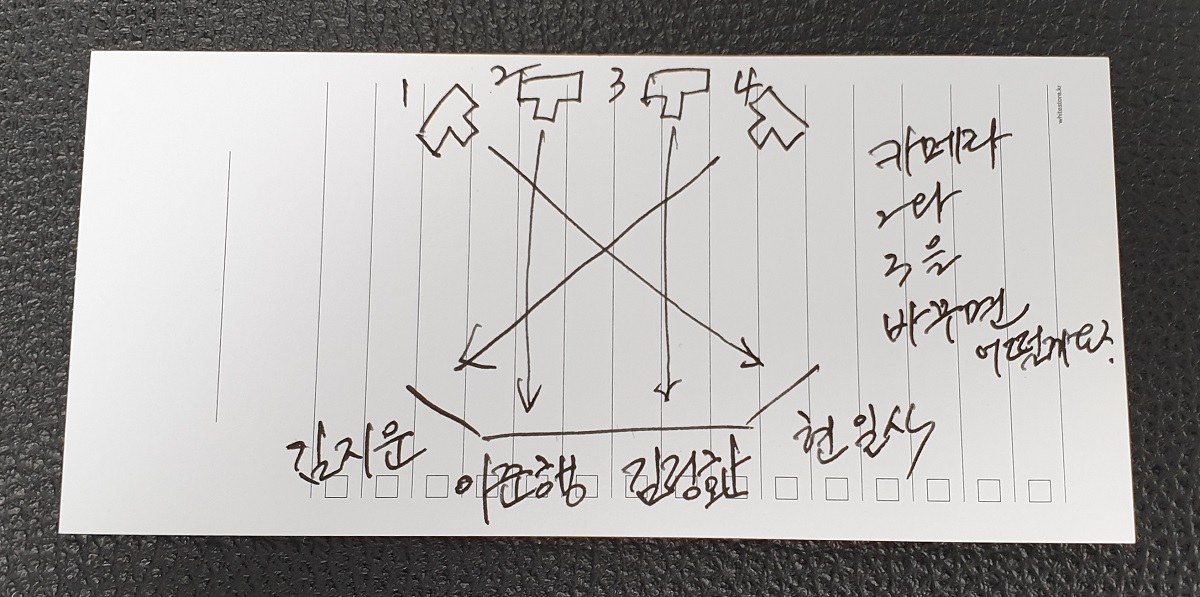 1 2 3 4
whitestore.kr
카메라
2와
3을
바꾸면
어떨까요?
김지운
이준행
김정환
현일식